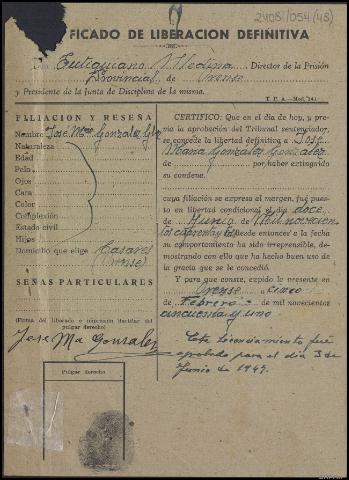 24081/054(48)
FICADO DE LIBERACION DEFINITIVA
Medina, Director de la Prisión
Provincial de Orense
y Presidente de la Junta de Disciplina de la misma.
T. P. A.—Mod. 141
FILIACION Y RESEÑA
Nombre José Mª González Glez
Naturaleza
Edad
Pelo
Ojos
Cara
Color
Complexión
Estado civil
Hijos
Domicilio que elige Casares
(Orense)
SEÑAS PARTICULARES
(Firma del liberado e impresión dactilar del
pulgar derecho)
Jose Mª Gonzalez
Pulgar derecho
CERTIFICO: Que en el día de hoy, y pre-
via aprobación del Tribunal sentenciador,
se concede la libertad definitiva a José
María González González
por haber extinguido
su condena.
cuya filiación se expresa al margen, fué pues-
to en libertad condicional el día doce
de Junio de mil novecien
tos cuarenta y desde entonces a la fecha
su comportamiento ha sido irreprensible, de-
mostrando con ello que ha hecho buen uso de
la gracia que se le concedió.
Y para que conste, expido la presente en
Orense a cinco
de Febrero de mil novecientos
cincuenta y uno
Este licenciamiento fué
aprobado para el día 3 de
Junio de 1947.